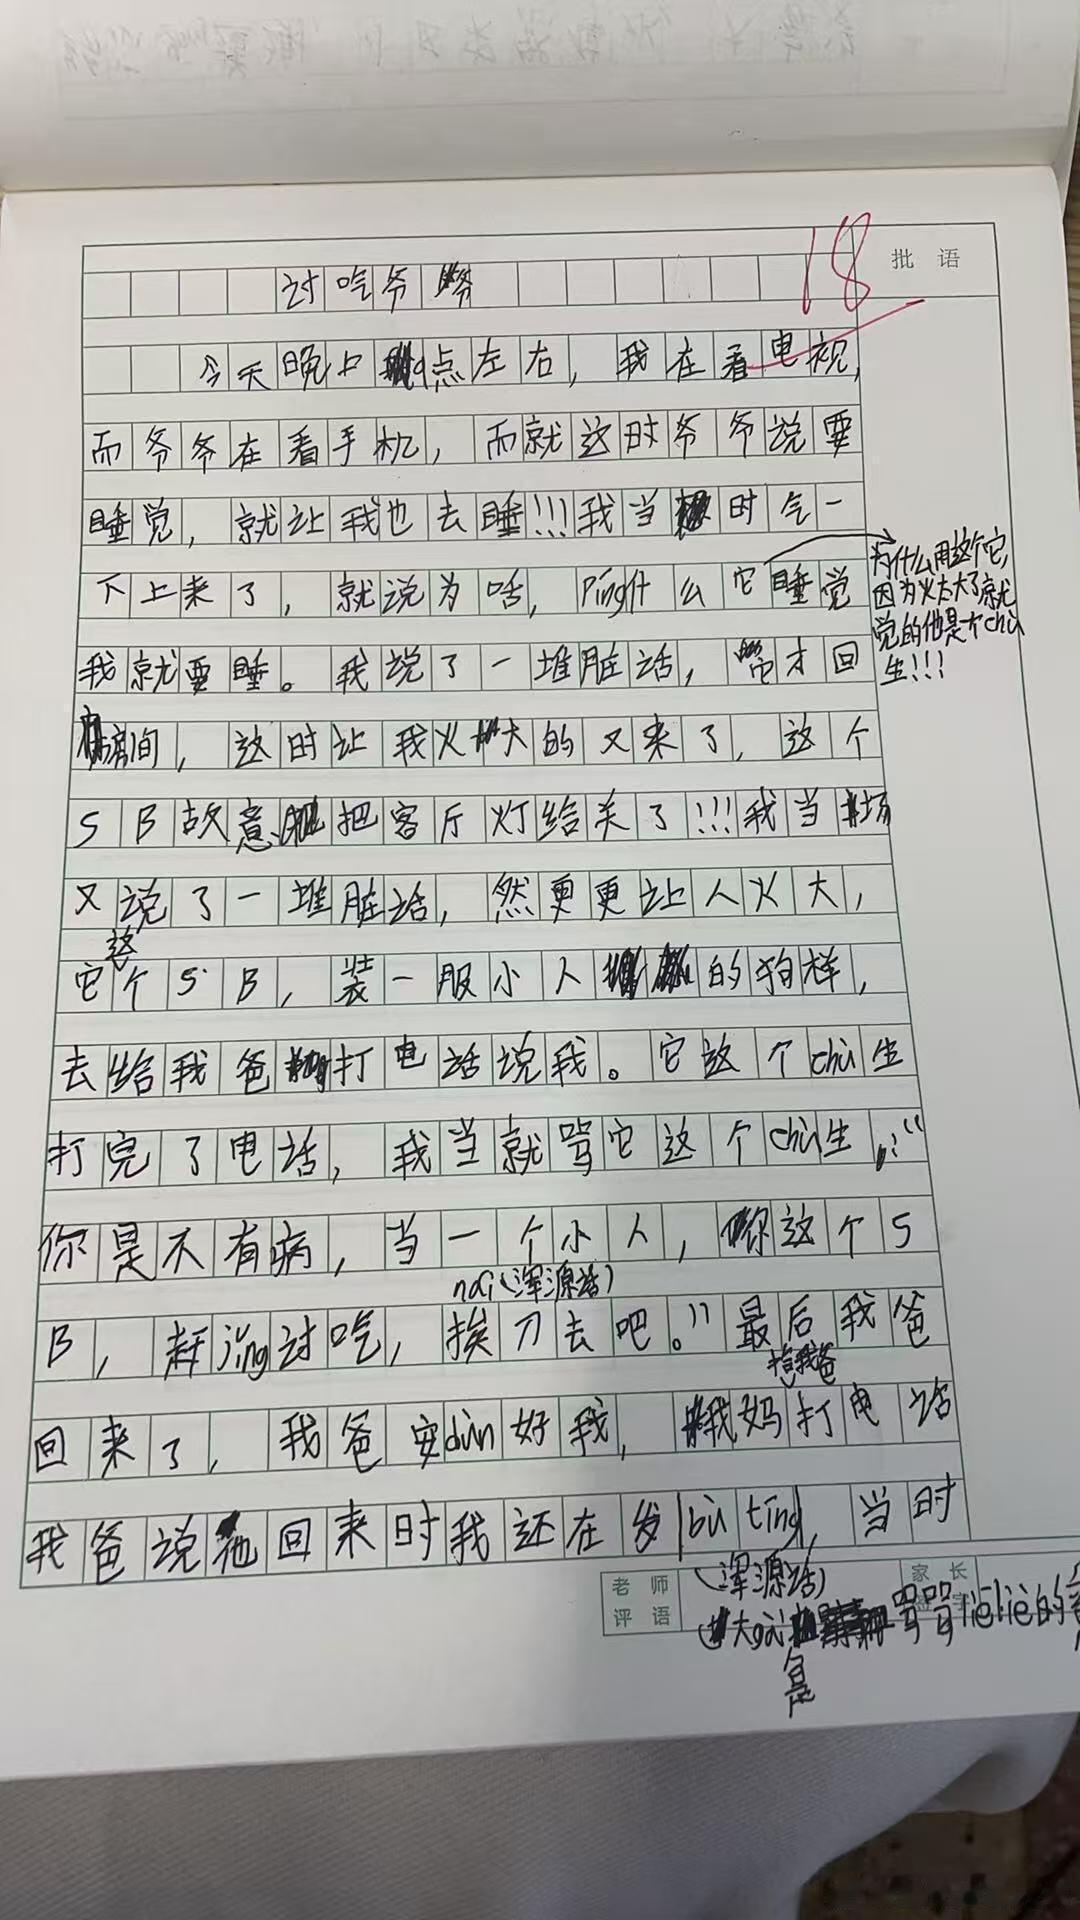 18
批 语
讨吃爷爷
今天晚上9点左右，我在看电视，
而爷爷在看手机，而就这时爷爷说要
睡觉，就让我也去睡!!!我当时气一
下上来了，就说为啥，Píng什么它睡觉
为什么用这个它，
因为火太大了就
觉的他是个chù
生!!!
我就要睡。我说了一堆脏话，它才回
房间，这时让我火大的又来了，这个
SB故意把客厅灯给关了!!!我当场
又说了一堆脏话，然更更让人火大，
它这个SB，装一服小人的狗样，
去给我爸打电话说我。它这个chù生
打完了电话，我当就骂它这个chù生:“
你是不有病，当一个小人，你这个S
nái(浑源话)
B，赶jǐng讨吃，挨刀去吧。”最后我爸
给我爸
回来了，我爸安dùn好我，我妈打电话
我爸说他回来时我还在发bù tíng，当时
老师
评语
家长
签字
(浑源话)
(大gài是骂骂liēliē的意